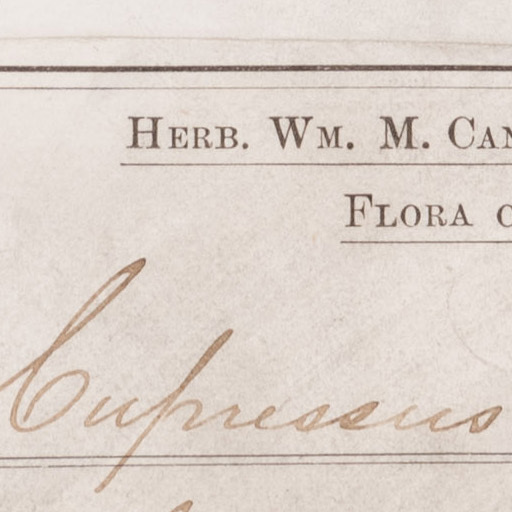 HERB. WM. M. CAN
FLORA O
Cupressus